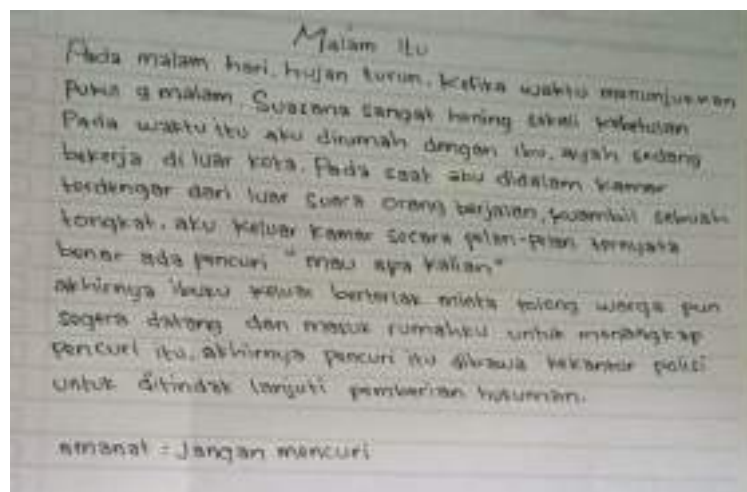 Malam itu
Pada malam hari, hujan turun. Ketika waktu menunjukkan
Pukul 9 malam. Suasana sangat hening sekali kebetulan
Pada waktu itu aku dirumah dengan ibu, ayah sedang
bekerja di luar kota. Pada saat aku didalam kamar
terdengar dari luar suara orang berjalan, kuambil sebuah
tongkat, aku keluar kamar secara pelan-pelan ternyata
benar ada pencuri "mau apa kalian"
akhirnya ibuku keluar berteriak minta tolong warga pun
segera datang dan masuk rumahku untuk menangkap
pencuri itu, akhirnya pencuri itu dibawa kekantor polisi
untuk ditindak lanjuti pemberian hukuman.
amanat = Jangan mencuri